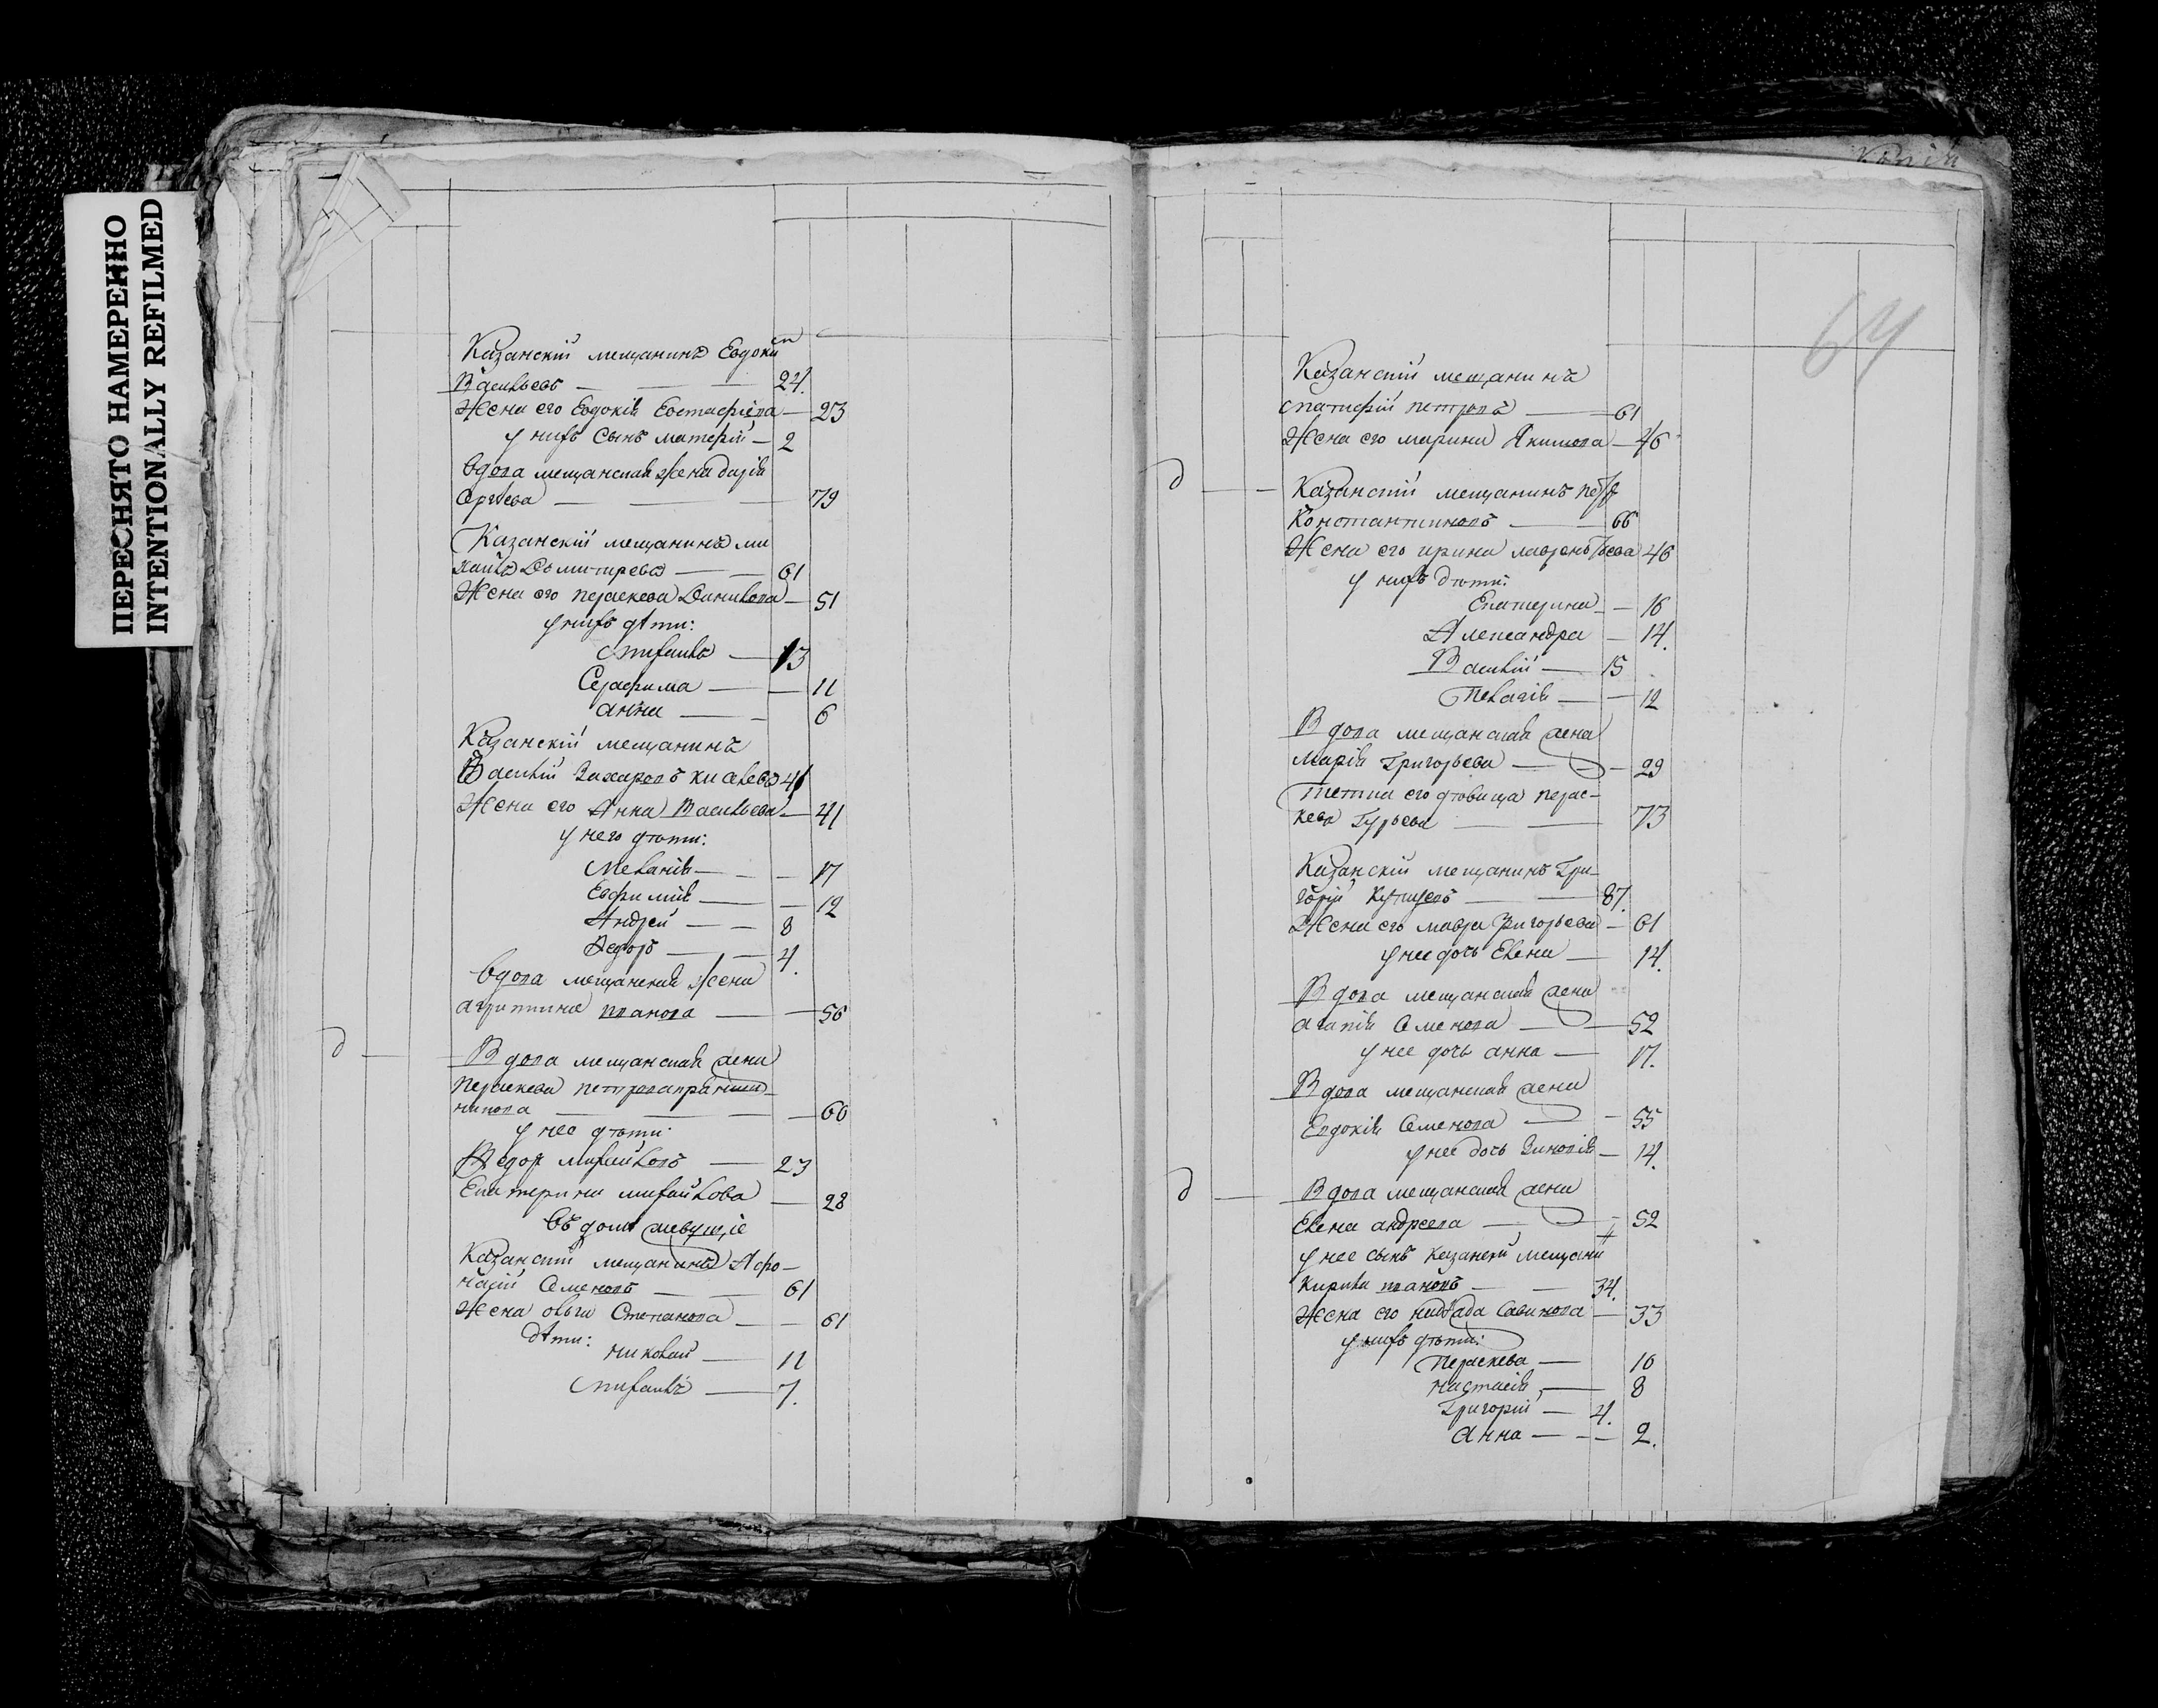 ПЕРЕСНЯТО НАМЕРЕННО
INTENTIONALLY REFILMED
Казанскій мещанинъ Евдоким
Васильевъ — 24.
Жена его Евдокія Евстафіева — 23
у нихъ сынъ матфей — 2
вдова мещанская жена дарія
Сергѣева — 79
Казанскій мещанинъ ми
хайла Дьмитрева — 61
Жена его параскева Данилова — 51
у нихъ дѣти:
михаилъ — 13
Серафима — 11
анна — 6
Казанскій мещанинъ
Василій Захаровъ 41
Жена его Анна Васильева — 41
у него дѣти:
Меланія — 17
Евфимія — 12
Андрей — 8
Федоръ — 4.
вдова мещанская жена
агрипина иванова — 56
д — Вдова мещанская жена
параскева петрова
60
у нее дѣти:
Федоръ михайловъ — 23
Екатерина михайлова — 28
въ домѣ живущіе
Казанскій мещанинъ Афо-
насій Семеновъ — 61
Жена ольга Степанова — 61
дѣти:
николай — 11
михаилъ — 7.
копія
64
Казанскій мещанинъ
петровъ — 61
Жена его марина Якимова — 46
д — Казанскій мещанинъ петръ
Константиновъ — 66
Жена его ирина лаврентьева 46
у нихъ дѣти:
Екатерина — 16
Александра — 14.
Василій — 15
Пелагія — 12
Вдова мещанская жена
Марія Григорьева — 29
тетка его дѣвица парас-
кева Гурьева — 73
Казанскій мещанинъ Гри-
горій — 87.
Жена его мавра Григорьева — 61
у нее дочь Елена — 14.
Вдова мещанская жена
агапія Семенова — 52
у нее дочь анна — 17.
Вдова мещанская жена
Евдокія Семенова — 55
у нее дочь Зиновія — 14.
д — Вдова мещанская жена
Елена андреева — 52
у нее сынъ казанскій мещани
Кирила ивановъ — 34.
Жена его Савинова — 33
у нихъ дѣти:
Параскева — 10
настасія — 8
Григорій — 4.
Анна — 2.